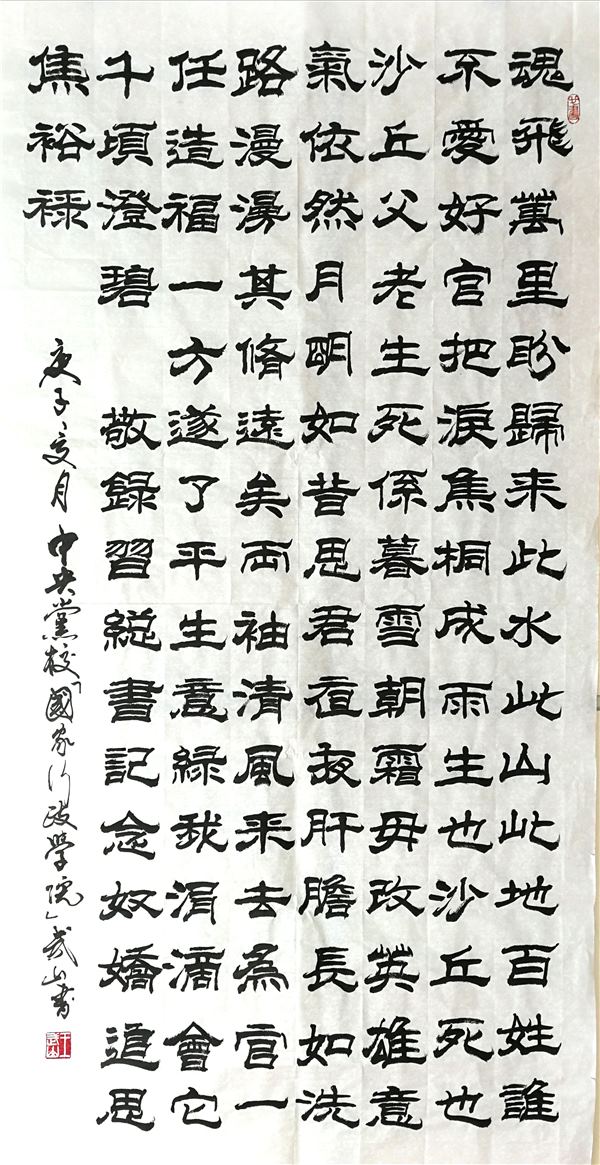 魂飛萬里盼歸来此水此山此地百姓誰
不愛好官把淚焦桐成雨生也沙丘死也
沙丘父老生死係暮雪朝霜毋改英雄意
氣依然月明如昔思君夜夜肝膽長如洗
路漫漫其脩遠矣両袖清風来去為官一
任造福一方遂了平生意綠我涓滴會它
千頃澄碧 敬録習縂書記念奴嬌追思
焦裕禄
庚子夏月中央黨校「國家行政學院」武山書